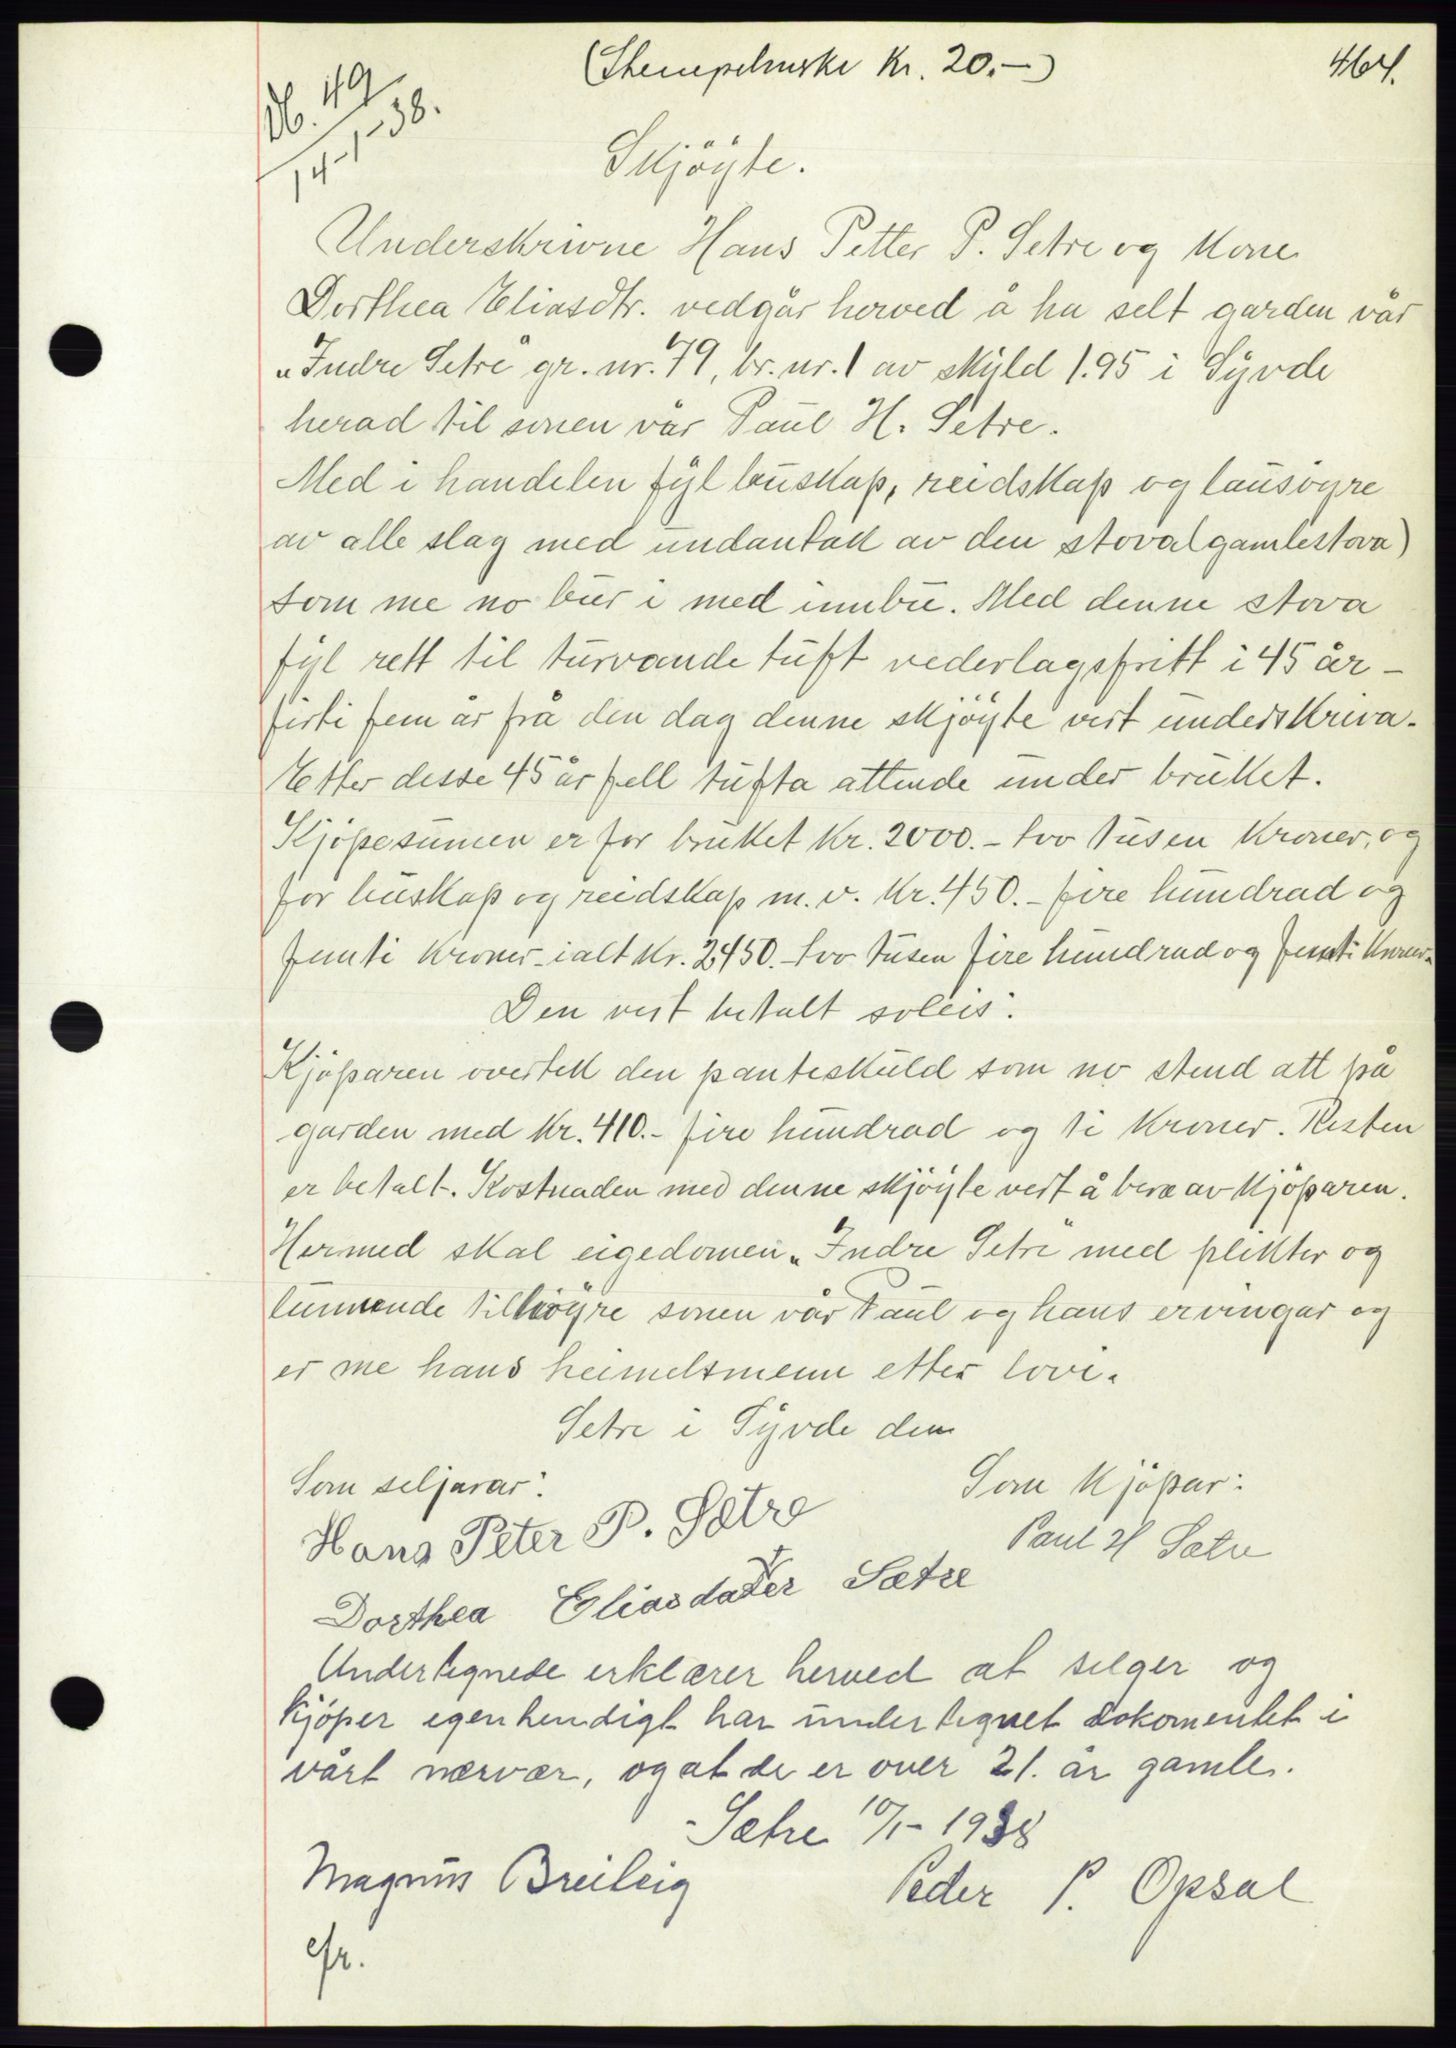 (Stempelmerke Kr. 20.-)
464.
Db. 49
14-1-38.
Skjöyte.
Underskrivne Hans Petter P. Setre og Kone
Dorthea Eliasdtr. vedgår herved å ha selt garden vår
„Indre Setre" gr. nr. 79, br. nr. 1 av skyld 1.95 i Syvde
herad til sonen vår Paul H. Setre.
Med i handelen fyl buskap, reidskap og lausöyre
av alle slag med undantak av den stova (gamlestova)
som me no bur i med innbu. Med denne stova
fyl rett til turvande tuft vederlagsfritt i 45 år -
firti fem år frå den dag denne skjöyte vert underskriva.
Etter desse 45 år fell tufta attende under bruket.
Kjöpesumen er for bruket Kr. 2000.- tvo tusen Kroner, og
for buskap og reidskap m. v. Kr. 450.- fire hundrad og
femti Kroner - ialt Kr. 2450.- tvo tusen fire hundrad og femti Kroner.
Den vert betalt soleis:
Kjöparen overtek den panteskuld som no stend att på
garden med Kr. 410.- fire hundrad og ti Kroner. Resten
er betalt. Kostnaden med denne skjöyte vert å bera av Kjöparen.
Hermed skal eigedomen „Indre Setre" med plikter og
lunnende tilhöyre sonen vår Paul og hans ervingar og
er me hans heimelsmenn etter lovi.
Setre i Syvde den
Som seljarar:
Som Kjöpar:
Hans Peter P. Sætre
Paul H Sætre
Dorthea Eliasdatter Sætre
Undertegnede erklærer herved at selger og
kjöper egenhendigt har undertegnet dokomentet i
vårt nærvær, og at de er over 21. år gamle.
Sætre 10/1-1938
Magnus Breiteig
Peder P. Opsal